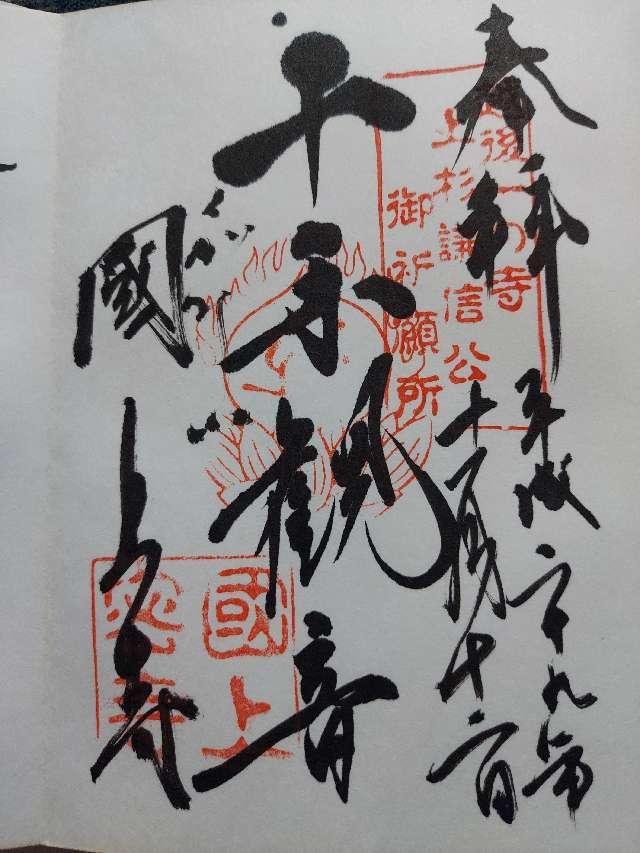 奉拝
平成二十九年
十一月十二日
越後一の寺
上杉謙信公
御祈願所
千手觀音
國上寺
國上